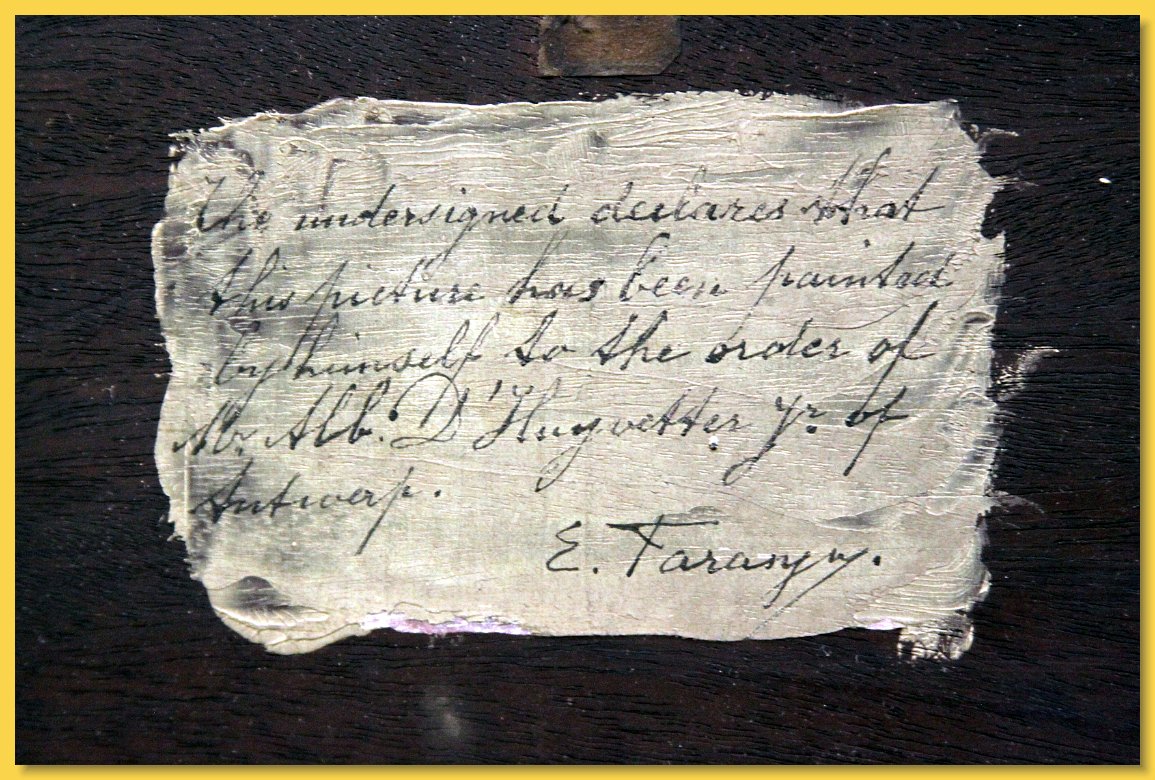 The undersigned declares that
this picture has been painted
by himself to the order of
Mr. Alb. D'Huyvetter Jr. of
Antwerp.
E. Farasyn.